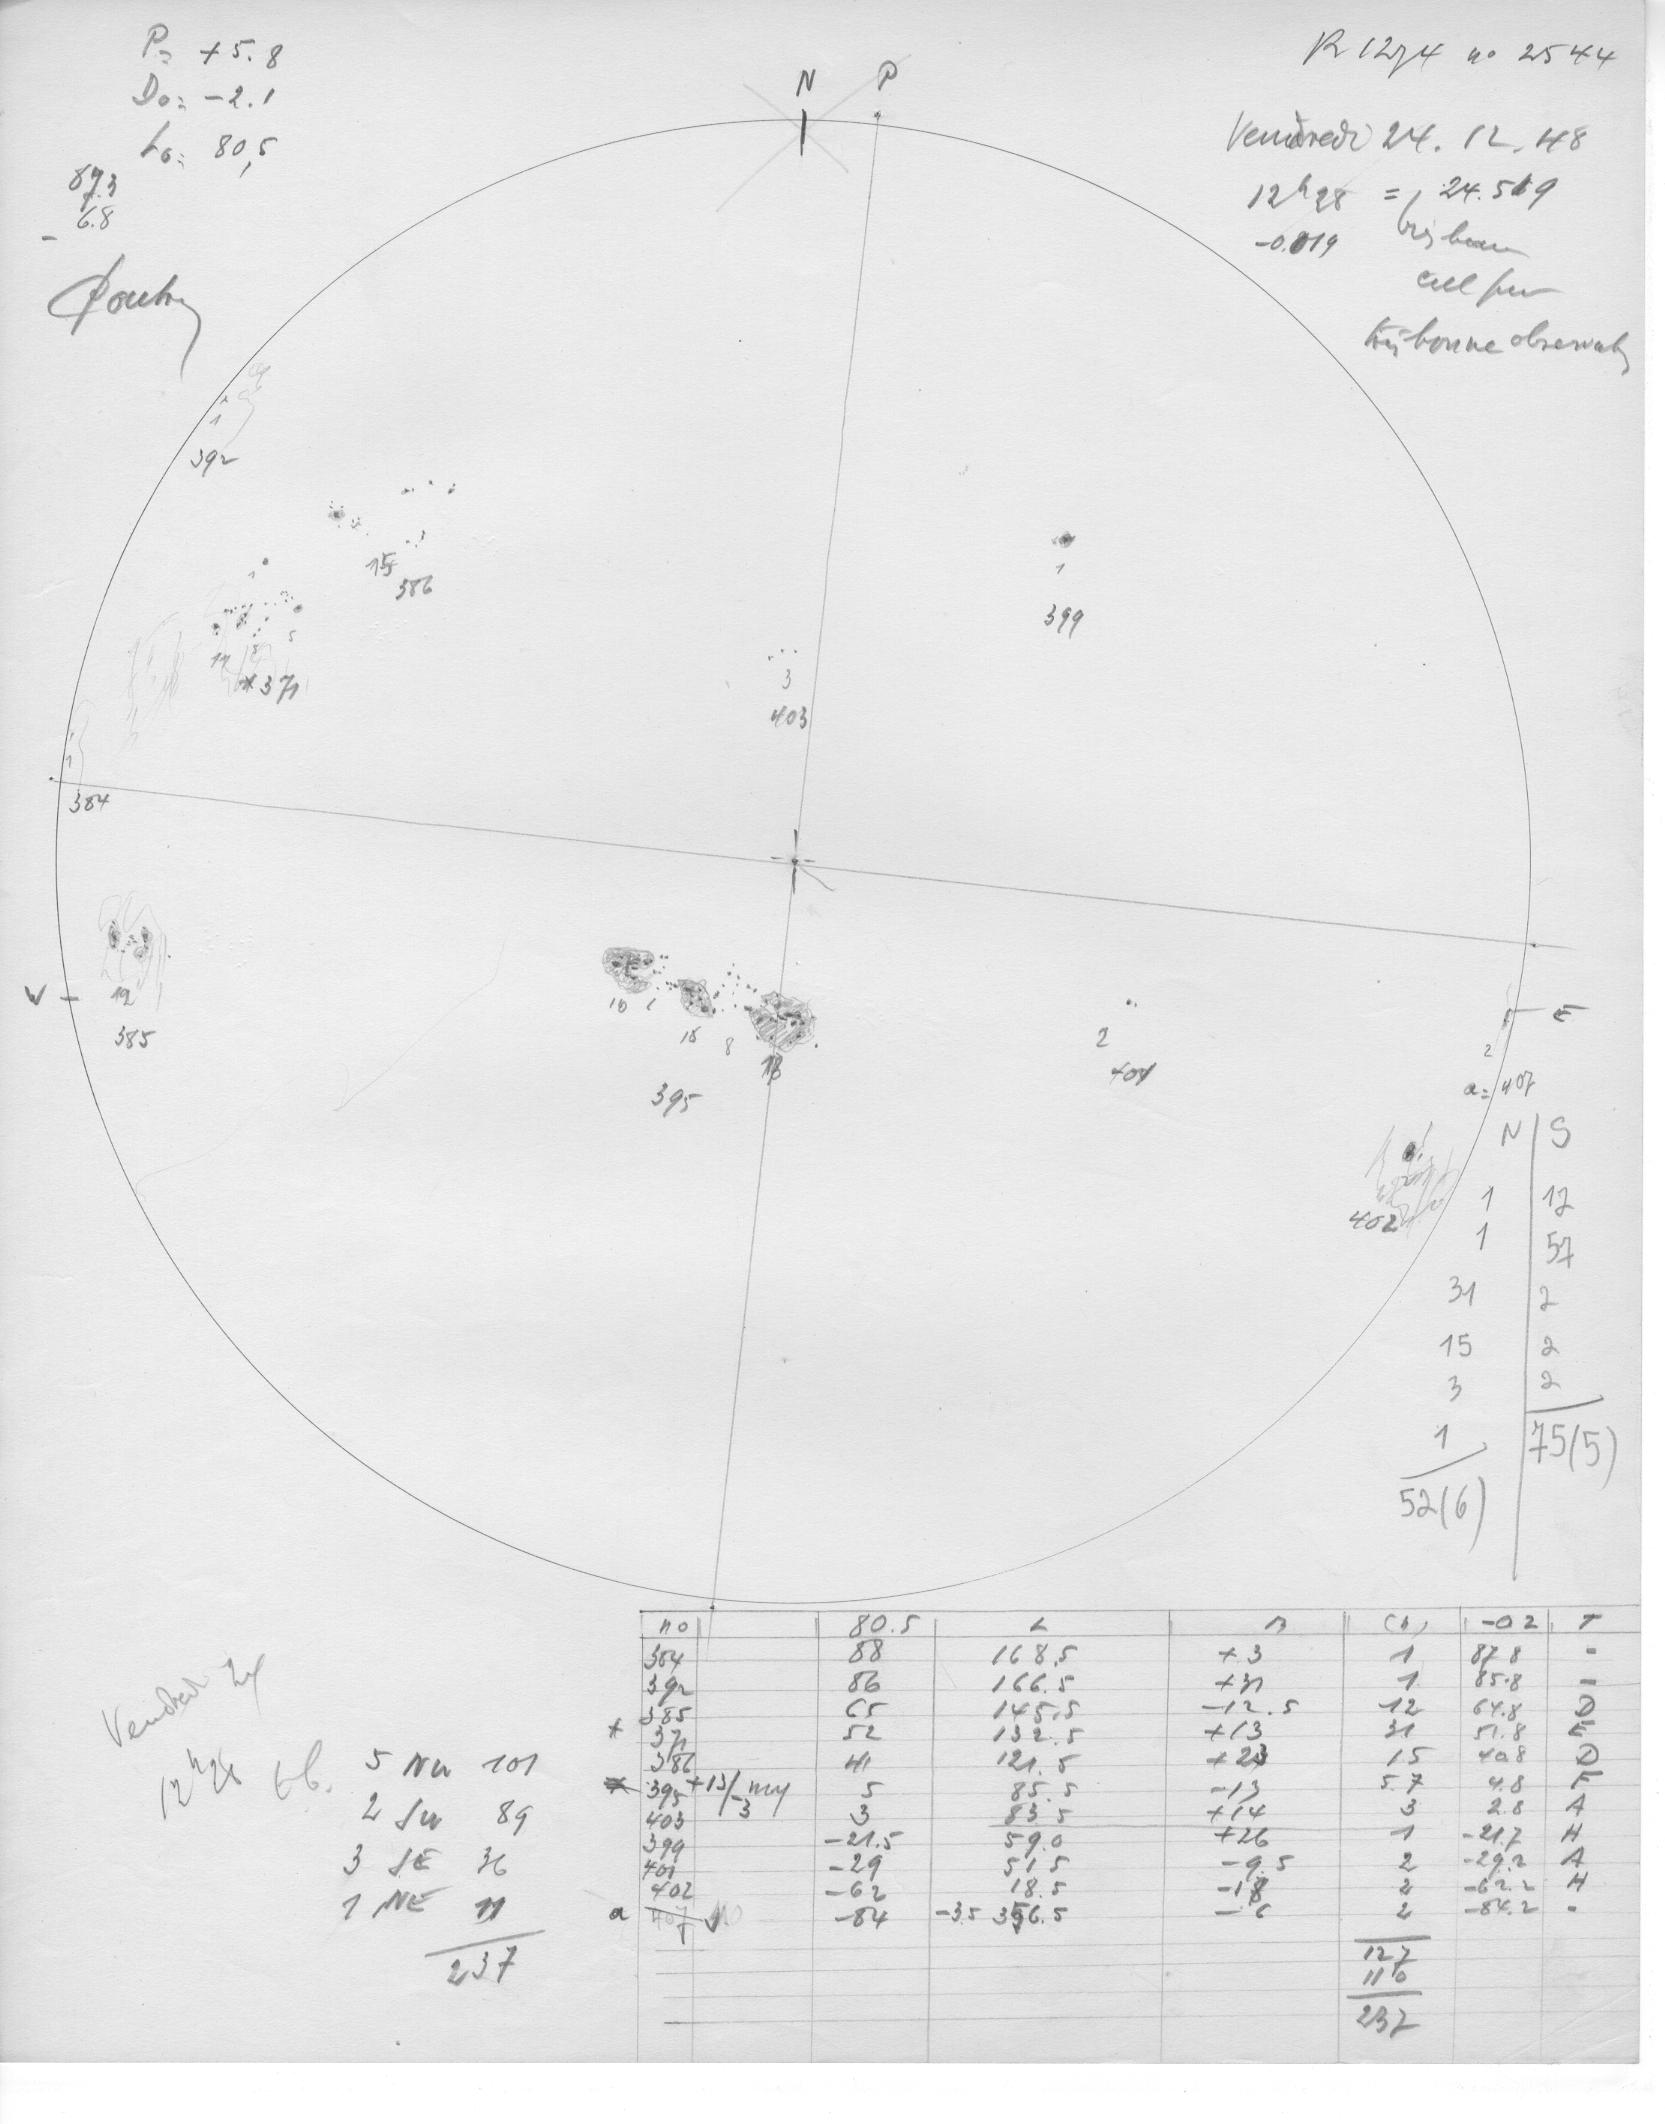 P= +5.8
Do= -2.1
Lo= 80,5
87.3
- 6.8
N P
R 1274 no 2544
Vendredi 24.12.48
12h28 = 24.519
-0.019
ciel pur
très bonne observat
1
392
15
386
1
11 8 5
* 371
1
384
3
403
1
399
W -
12
385
10 6 15 8 18
395
2
401
E
2
a= 407
402
N | S
1 | 12
1 | 57
31 | 2
15 | 2
3 | 2
1 | 75(5)
52(6)
no 80.5 L B (h) -02 T
384 88 168.5 +3 1 87.8 -
392 86 166.5 +31 1 85.8 -
385 65 145.5 -12.5 12 64.8 D
* 371 52 132.5 +13 31 51.8 E
386 41 121.5 +23 15 40.8 D
395 5 85.5 -13 57 4.8 F
403 3 83.5 +14 3 2.8 A
399 -21.5 59.0 +26 1 -21.7 H
401 -29 51.5 -9.5 2 -29.2 A
402 -62 18.5 -18 2 -62.2 H
a 407 -84 -3.5 356.5 -6 2 -84.2 -
127
110
237
Vendredi 24
12h28 tb.
5 NW 101
2 SW 89
3 SE 36
1 NE 11
237